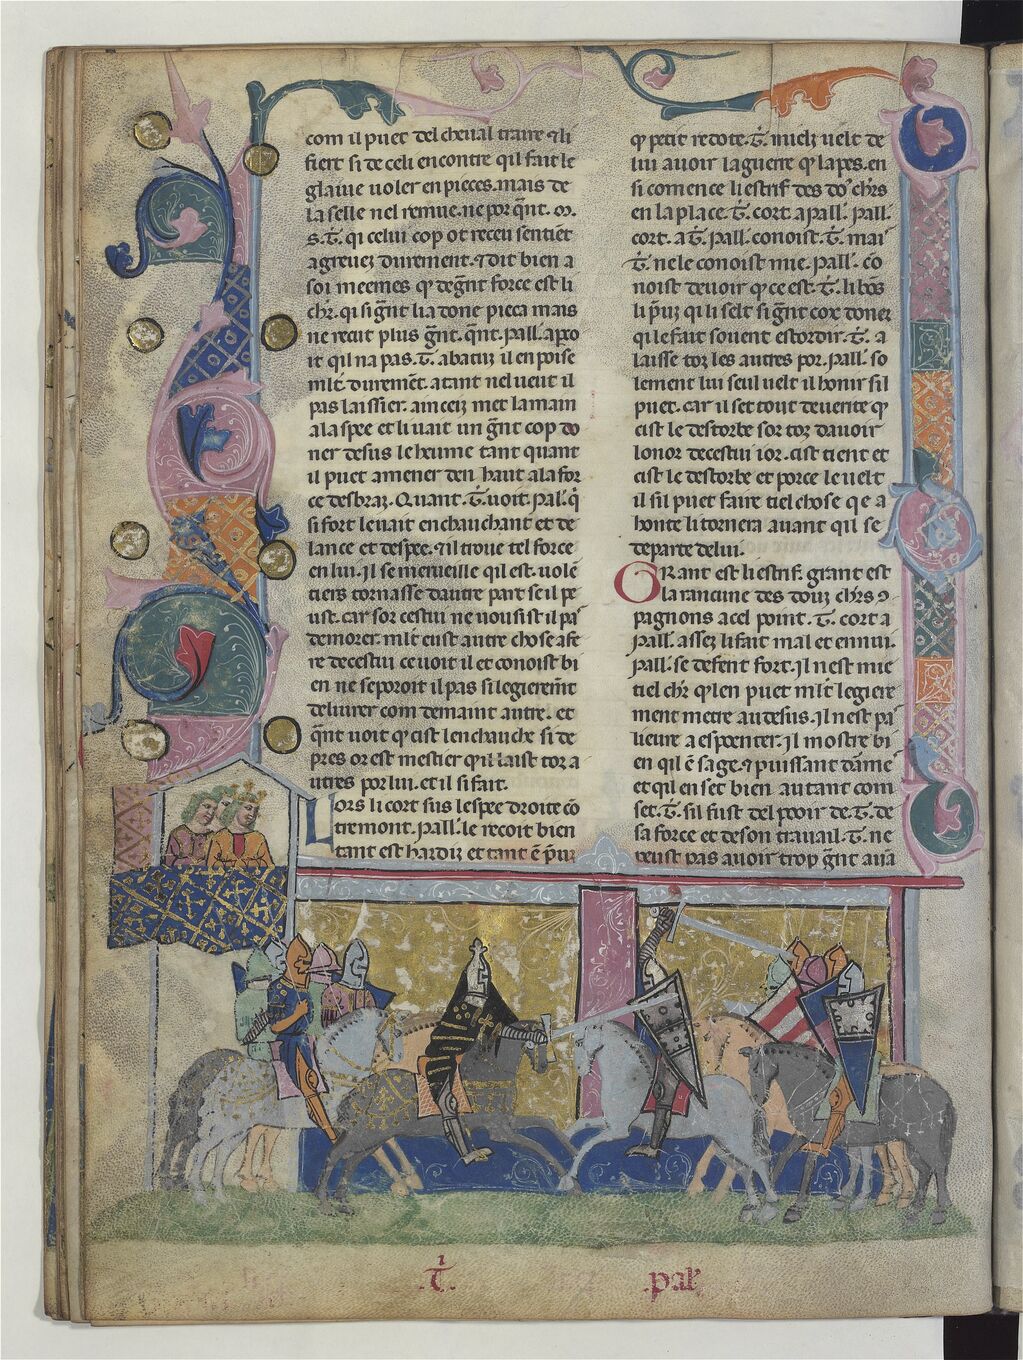 com il puet del cheual traire ⁊ li
fiert si de celi encontre qil fait le
glaiue uoler en pieces. mais de
la selle nel remue. ne por qnt. m.
s. T. qi celui cop ot receu sentiet
agreuez durement. ⁊ dit bien a
soi meemes q̄ de gnt force est li
chr. qi si gnt li a done pieca mais
ne recut plus gnt. qnt. pall. aꝑo
it qil na pas. T. abatuz il en poise
mlt durement. atant nel ueut il
pas laissier. ainceiz met la main
a la spee et li uait un gnt cop do
ner desus le heume tant quant
il puet amener den haut a la for
ce des braz. Quant. T. uoit. Pal. q̄
si fort le uait enchauchant et de
lance et despee. ⁊ il troue tel force
en lui. Il se merueille qil est. uolē
tiers tornasse dautre part se il pe
ust. car sor cestui ne uousist il pa
demorer. mlt eust autre chose afe
re de cestui ce uoit il et conoist bi
en ne se poroit il pas si legieremt
deliurer com demaint autre. et
qnt uoit q̄ cist lenchauche si de
pres or est mestier qil laist toz a
utres por lui. et il si fait.
Lors li cort sus lespee droite cō
tremont. Pall. le recoit bien
tant est hardiz et tant ē pruz
q̄ petit redote. T. mielz uelt de
lui auoir la guerre q̄ la pes. en
si comence li estrif des do' chrs
en la place. T. cort a pall. Pall.
cort. a T. Pall. conoist. T. mai
T. ne le conoist mie. Pall. cō
noist de uoir q̄ ce est. T. li bōs
li pruz qi li selt si gnt cox doner
qi le fait souent estordir. T. a
laisse toz les autres por. Pall. so
lement lui seul uelt il honir sil
puet. car il set tout de uerite q̄
cist le destorbe sor toz dauoir
lonor de cestui ior. cist tient et
cist le destorbe et por ce le uelt
il sil puet faire tiel chose qe a
honte li tornera auant qil se
departe de lui.
Grant est li estrif. grant est
la rancune des douz chrs ꝯ
pagnons a cel point. T. cort a
Pall. assez li fait mal et ennui.
Pall. se defent fort. Il nest mie
tiel chr q̄ len puet mlt legiere
ment metre au desus. Il nest pa
lieure a espoenter. Il mostre bi
en qil ē sage. ⁊ puissant dame
et qil en set bien autant com
set. T. sil fust del pooir de. T. de
sa force et de son trauail. T. ne
peust pas auoir trop gnt auā
T
pal'